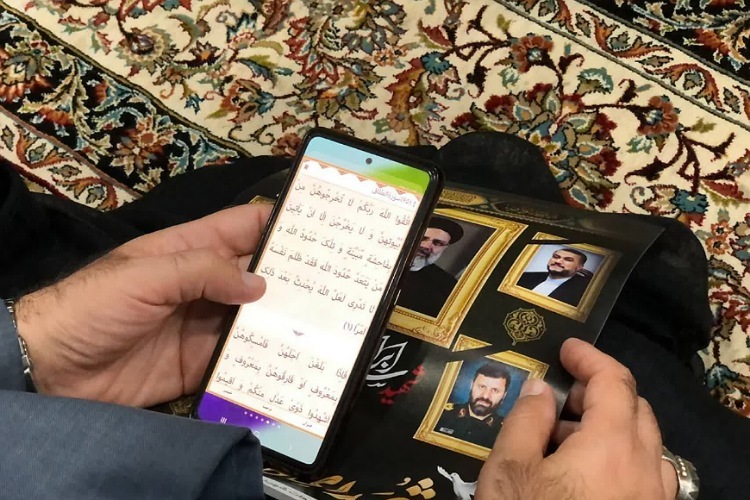 سورة الطلاق
اتَّقُوا اللَّهَ رَبَّكُمْ لَا تُخْرِجُوهُنَّ مِنْ
بُيُوتِهِنَّ وَ لَا يَخْرُجْنَ إِلَّا أَنْ يَأْتِينَ
بِفَاحِشَةٍ مُبَيِّنَةٍ وَ تِلْكَ حُدُودُ اللَّهِ وَ
مَنْ يَتَعَدَّ حُدُودَ اللَّهِ فَقَدْ ظَلَمَ نَفْسَهُ
لَا تَدْرِى لَعَلَّ اللَّهَ يُحْدِثُ بَعْدَ ذَٰلِكَ
أَمْرًا (١)
فَإِذَا بَلَغْنَ أَجَلَهُنَّ فَأَمْسِكُوهُنَّ
بِمَعْرُوفٍ أَوْ فَارِقُوهُنَّ بِمَعْرُوفٍ وَ
أَشْهِدُوا ذَوَىْ عَدْلٍ مِنْكُمْ وَ أَقِيمُوا